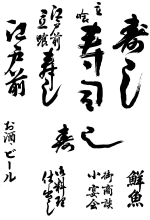 寿し
立喰
寿司
江戸前
立喰
寿し
江戸前
寿し
鮮魚
御商談
小宴会
御料理
仕出し
お酒
ビール